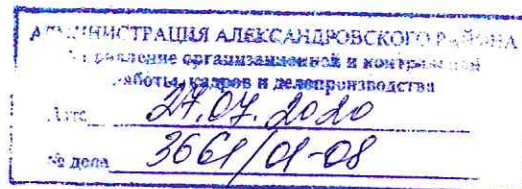 АДМИНИСТРАЦИЯ АЛЕКСАНДРОВСКОГО РАЙОНА
Управление организационной и контрольной
работы, кадров и делопроизводства
Дата 27.07.2020
№ дела 3661/01-08